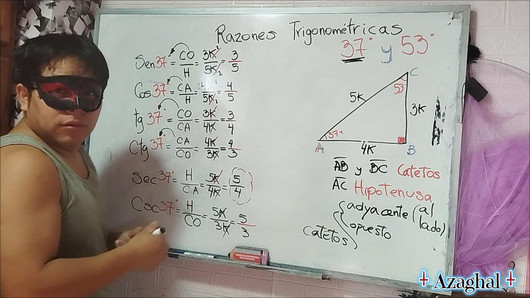 Razones Trigonométricas
37° y 53°
Sen37°= CO/H = 3K/5K = 3/5
Cos37°= CA/H = 4K/5K = 4/5
tg 37°= CO/CA = 3K/4K = 3/4
Ctg37°= CA/CO = 4K/3K = 4/3
Sec37°= H/CA = 5K/4K = 5/4
Csc37°= H/CO = 5K/3K = 5/3
C
53°
5K
3K
37°
A
4K
B
AB y BC Catetos
AC Hipotenusa
Catetos { adyacente (al lado)
opuesto
Azaghal